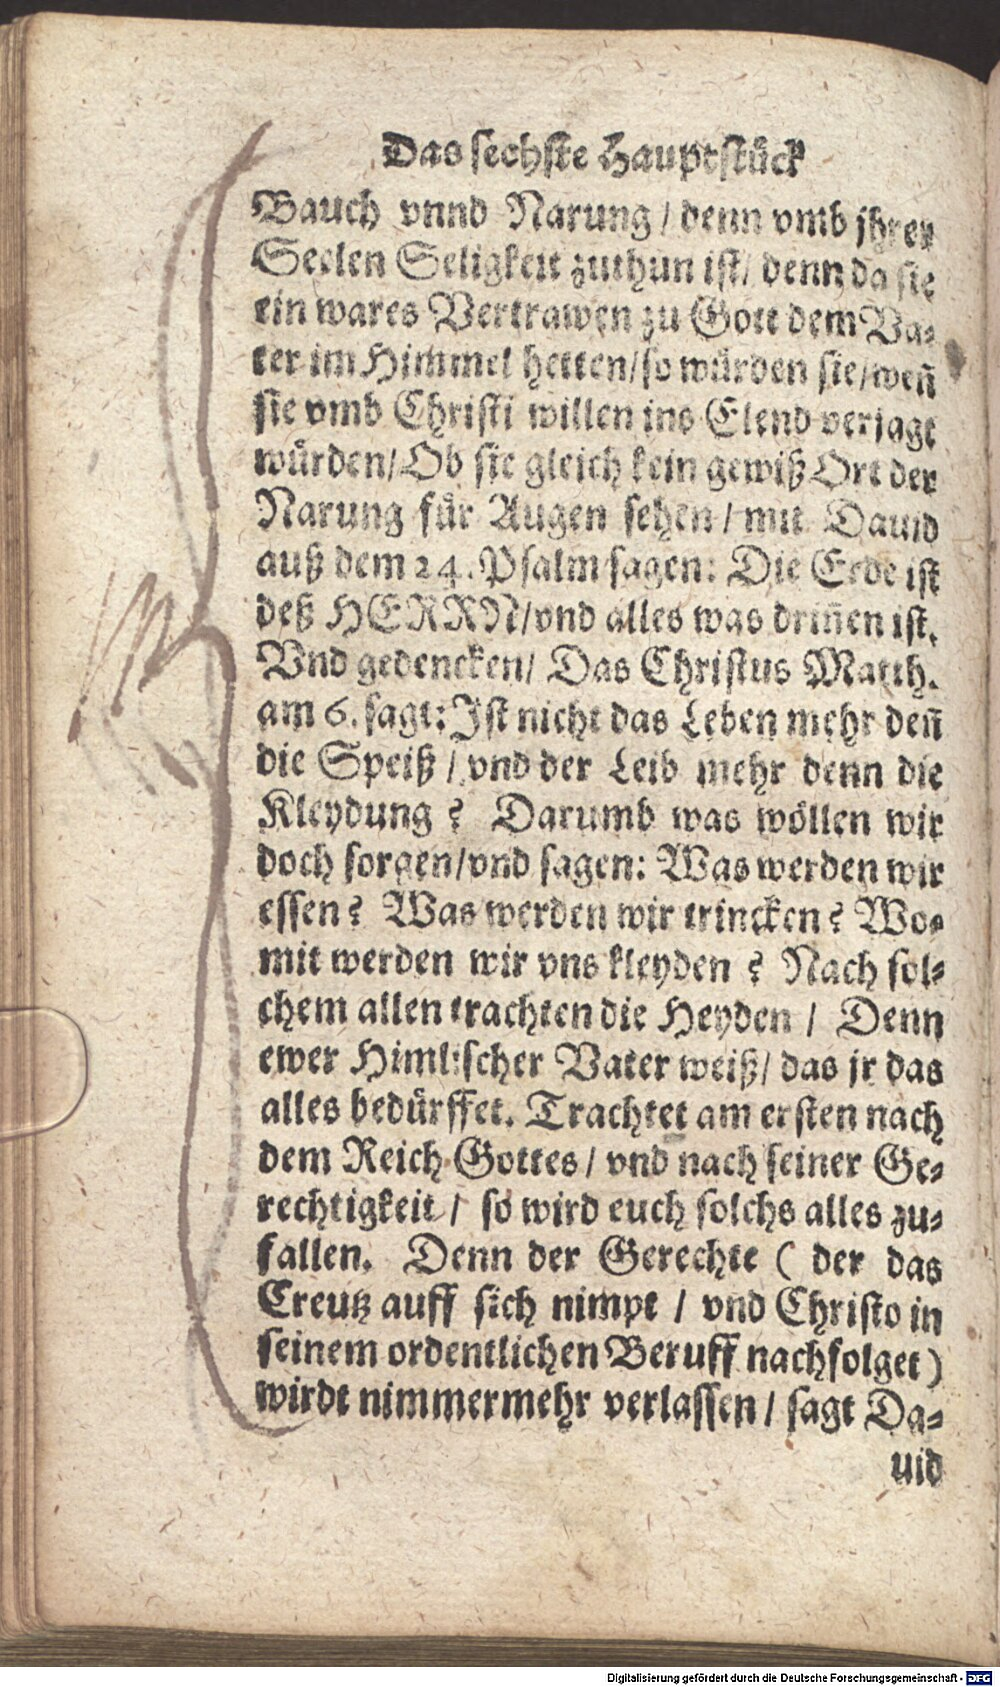 Das sechste Hauptstück
Bauch vnnd Narung / denn vmb jhrer
Seelen Seligkeit zuthun ist / denn da sie
ein wares Vertrawen zu Gott dem Va-
ter im Himmel hetten / so würden sie / weñ
sie vmb Christi willen ins Elend verjagt
würden / Ob sie gleich kein gewiß Ort der
Narung für Augen sehen / mit Dauid
auß dem 24. Psalm sagen: Die Erde ist
deß HERRN / vnd alles was driñen ist.
Vnd gedencken / Das Christus Matth.
am 6. sagt: Ist nicht das Leben mehr deñ
die Speiß / vnd der Leib mehr denn die
Kleydung ? Darumb was wöllen wir
doch sorgen / vnd sagen: Was werden wir
essen ? Was werden wir trincken ? Wo-
mit werden wir vns kleyden ? Nach sol-
chem allen trachten die Heyden / Denn
ewer Himlischer Vater weiß / das jr das
alles bedürffet. Trachtet am ersten nach
dem Reich Gottes / vnd nach seiner Ge-
rechtigkeit / so wird euch solchs alles zu-
fallen. Denn der Gerechte ( der das
Creutz auff sich nimpt / vnd Christo in
seinem ordentlichen Beruff nachfolget )
wirdt nimmermehr verlassen / sagt Da-
uid
Digitalisierung gefördert durch die Deutsche Forschungsgemeinschaft - DFG